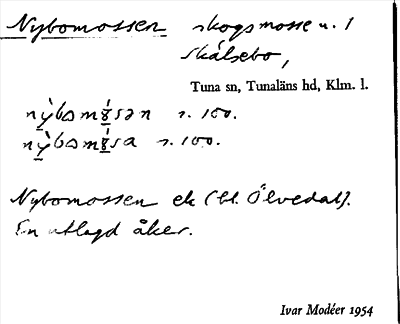 Nybomossen skogsmosse u. 1
Skälsebo,
Tuna sn, Tunaläns hd, Klm. l.
s. 100.
s. 100.
Nybomossen ek (bl. Ölvedal).
En utlagd åker.
Ivar Modéer 1954